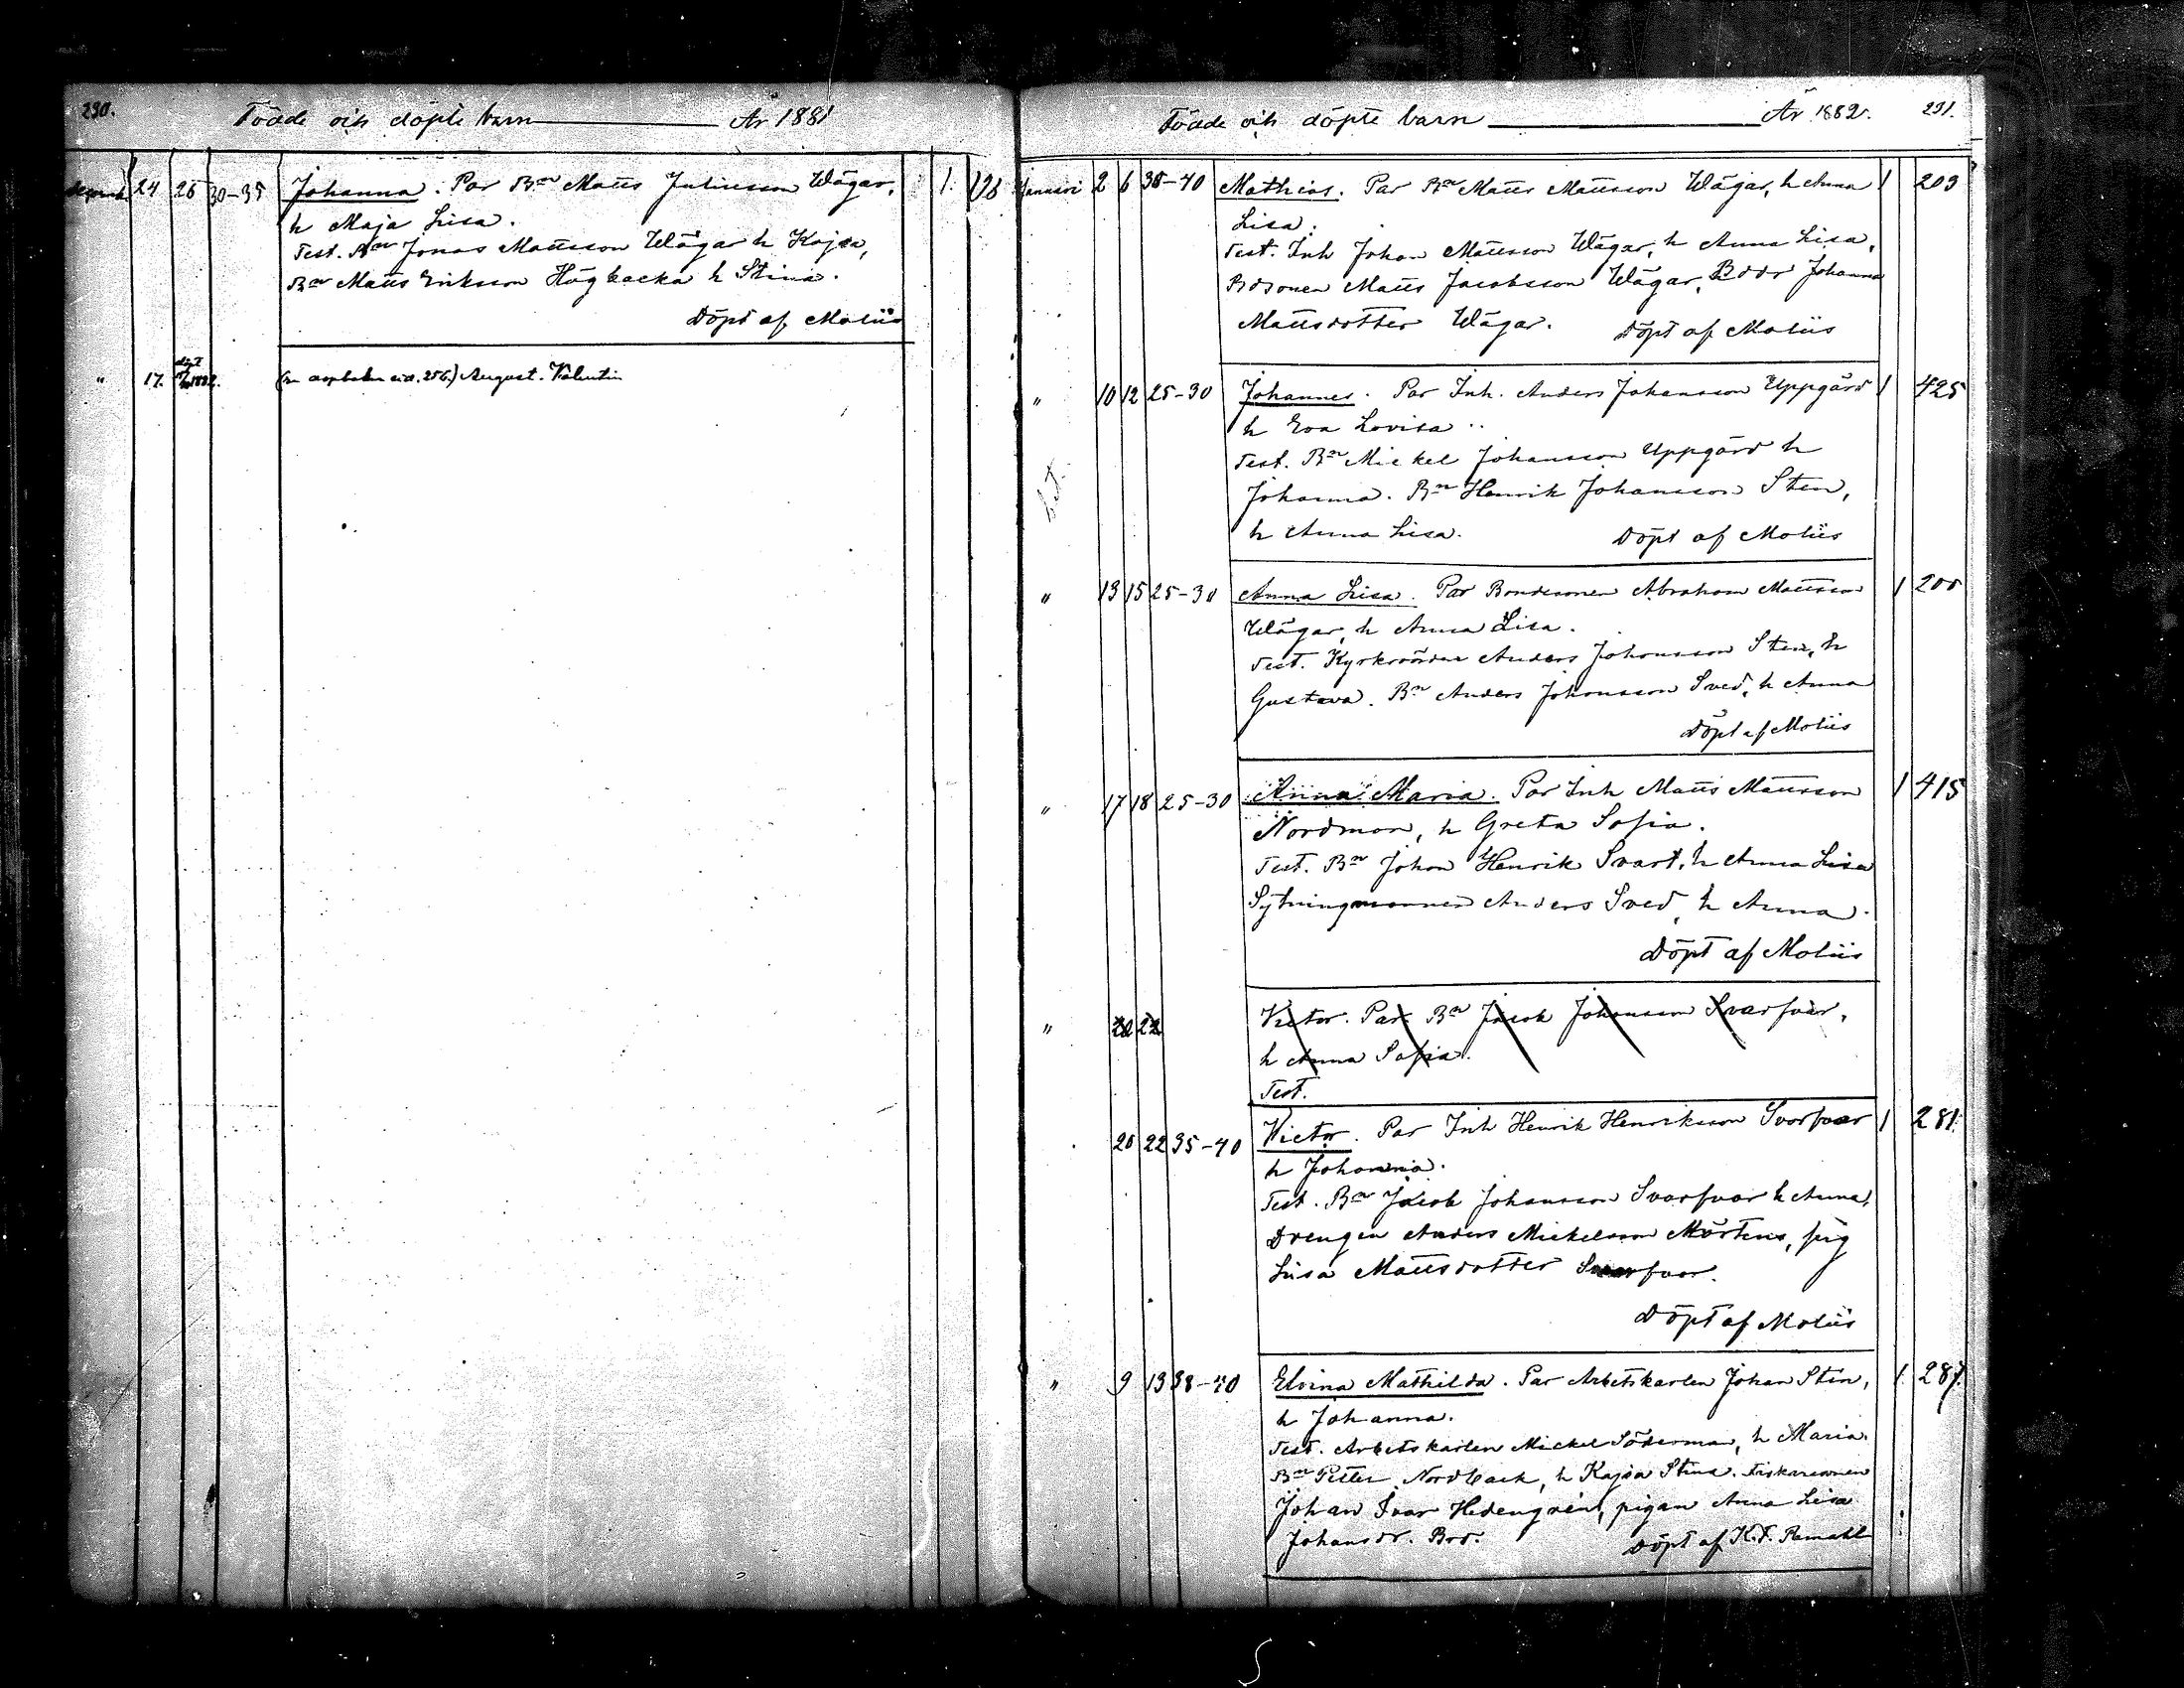 230.
Födde och döpte barn År 1881
24 26 30-35 Johanna. Par Bn Matts Juliusson Wägar, 1.
h Maja Lisa.
Test. Bn Jonas Mattsson Wägar h Kajsa,
Bn Matts Eriksson Högbacka h Stina.
Döpt af Moliis
" 17. 1882. August Valentin
Födde och döpte barn År 1882. 231.
Januari 2 6 38-40 Mathias. Par Bn Matts Mattsson Wägar, h Anna 1 203
Lisa.
Test. Inh Johan Mattsson Wägar, h Anna Lisa,
Bdsonen Matts Jacobsson Wägar, Bddr Johanna
Mattsdotter Wägar. Döpt af Moliis
" 10 12 25-30 Johannes. Par Inh. Anders Johansson Uppgård 1 425
h Eva Lovisa.
Test. Bn Mickel Johansson Uppgård h
Johanna. Bn Henrik Johansson Sten,
h Anna Lisa. Döpt af Moliis
" 13 15 25-30 Anna Lisa. Par Bondesonen Abraham Mattsson 1 200
Wägar, h Anna Lisa.
Test. Kyrkovärden Anders Johansson Sten, h
Gustava. Bn Anders Johansson Sved, h Anna
Döpt af Moliis
" 17 18 25-30 Anna Maria. Par Inh Matts Mattsson 1 415
Nordman, h Greta Sofia.
Test. Bn Johan Henrik Svart, h Anna Lisa
Sytningmannen Anders Sved, h Anna.
Döpt af Moliis
" 20 22 Victor. Par Bn Jacob Johansson Svarfvar,
h Anna Sofia.
Test.
20 22 35-40 Victor. Par Inh Henrik Henriksson Svarfvar 1 281
h Johanna.
Test. Bn Jacob Johansson Svarfvar h Anna,
Drengen Anders Mickelsson Mårtens, pig
Lisa Mattsdotter Svarfvar.
Döpt af Moliis
" 9 13 38-40 Elvina Mathilda. Par Arbetskarlen Johan Sten, 1. 287.
h Johanna.
Test. Arbetskarlen Mickel Söderman, h Maria.
Bn Petter Nordback, h Kajsa Stina. Fiskaresonen
Johan Ivar Hedengren, pigan Anna Lisa
Johansdr. Bro. Döpt af K.F.